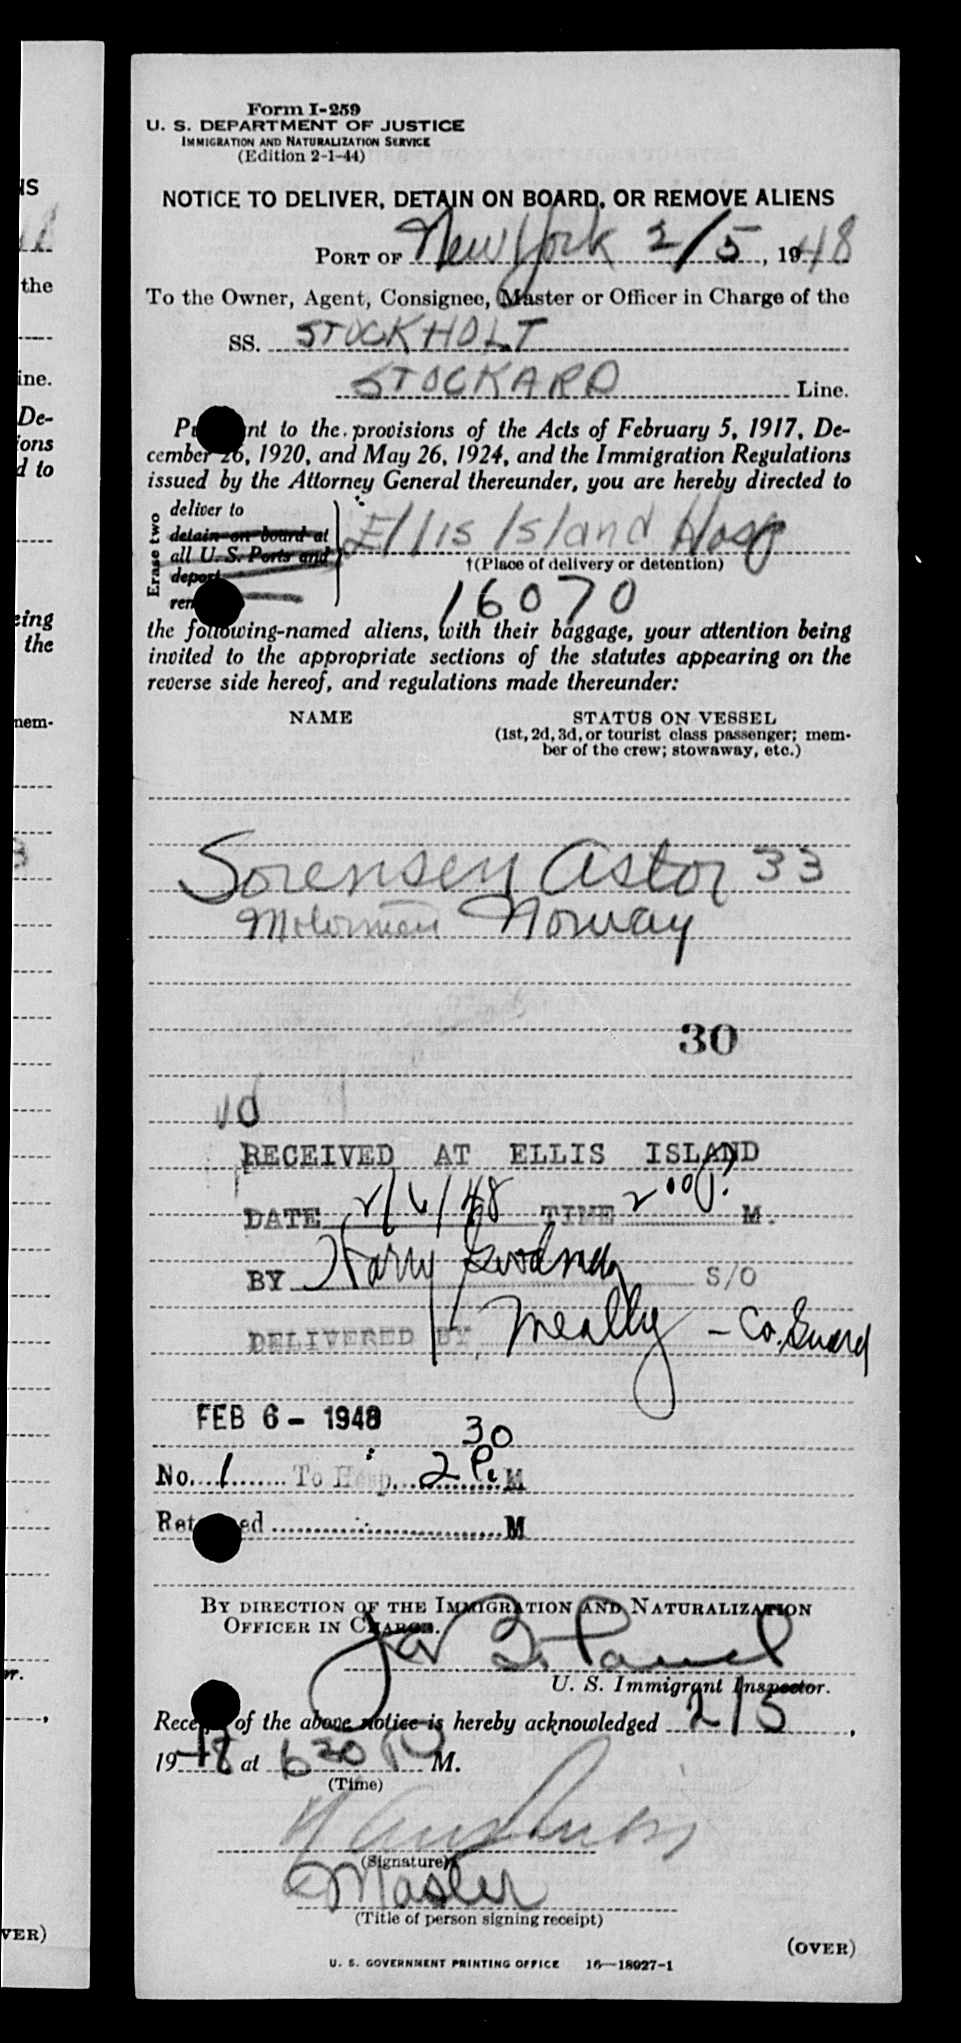 Form I-259
U. S. DEPARTMENT OF JUSTICE
IMMIGRATION AND NATURALIZATION SERVICE
(Edition 2-1-44)
NOTICE TO DELIVER, DETAIN ON BOARD, OR REMOVE ALIENS
PORT OF New York 2/5, 1948
To the Owner, Agent, Consignee, Master or Officer in Charge of the
SS. STOCKHOLT
STOCKARD Line.
Pu nt to the provisions of the Acts of February 5, 1917, De-
cember 26, 1920, and May 26, 1924, and the Immigration Regulations
issued by the Attorney General thereunder, you are hereby directed to
Erase two
deliver to
detain on board at
all U. S. Ports and
deport
rem
Ellis Island Hosp
†(Place of delivery or detention)
16070
the following-named aliens, with their baggage, your attention being
invited to the appropriate sections of the statutes appearing on the
reverse side hereof, and regulations made thereunder:
NAME STATUS ON VESSEL
(1st, 2d, 3d, or tourist class passenger; mem-
ber of the crew; stowaway, etc.)
Sorensen Astor 33
Motorman Norway
30
RECEIVED AT ELLIS ISLAND
DATE 2/6/48 TIME 2 00 P. M.
BY Harry S/O
DELIVERED BY Meally - Co. Guard
FEB 6 - 1948
No. 1 To Hosp. 2 30 P. M
Ret ed M
BY DIRECTION OF THE IMMIGRATION AND NATURALIZATION
OFFICER IN CHARGE.
U. S. Immigrant Inspector.
Rece of the above notice is hereby acknowledged 2/5,
1948 at 6 30 P M.
(Time)
(Signature)
Master
(Title of person signing receipt)
(OVER)
U. S. GOVERNMENT PRINTING OFFICE 16—18027-1
NS
the
ine.
De-
ions
d to
eing
the
mem-
or.
VER)